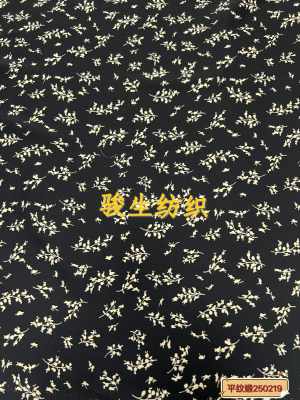 骏生纺织
平纹缎250219